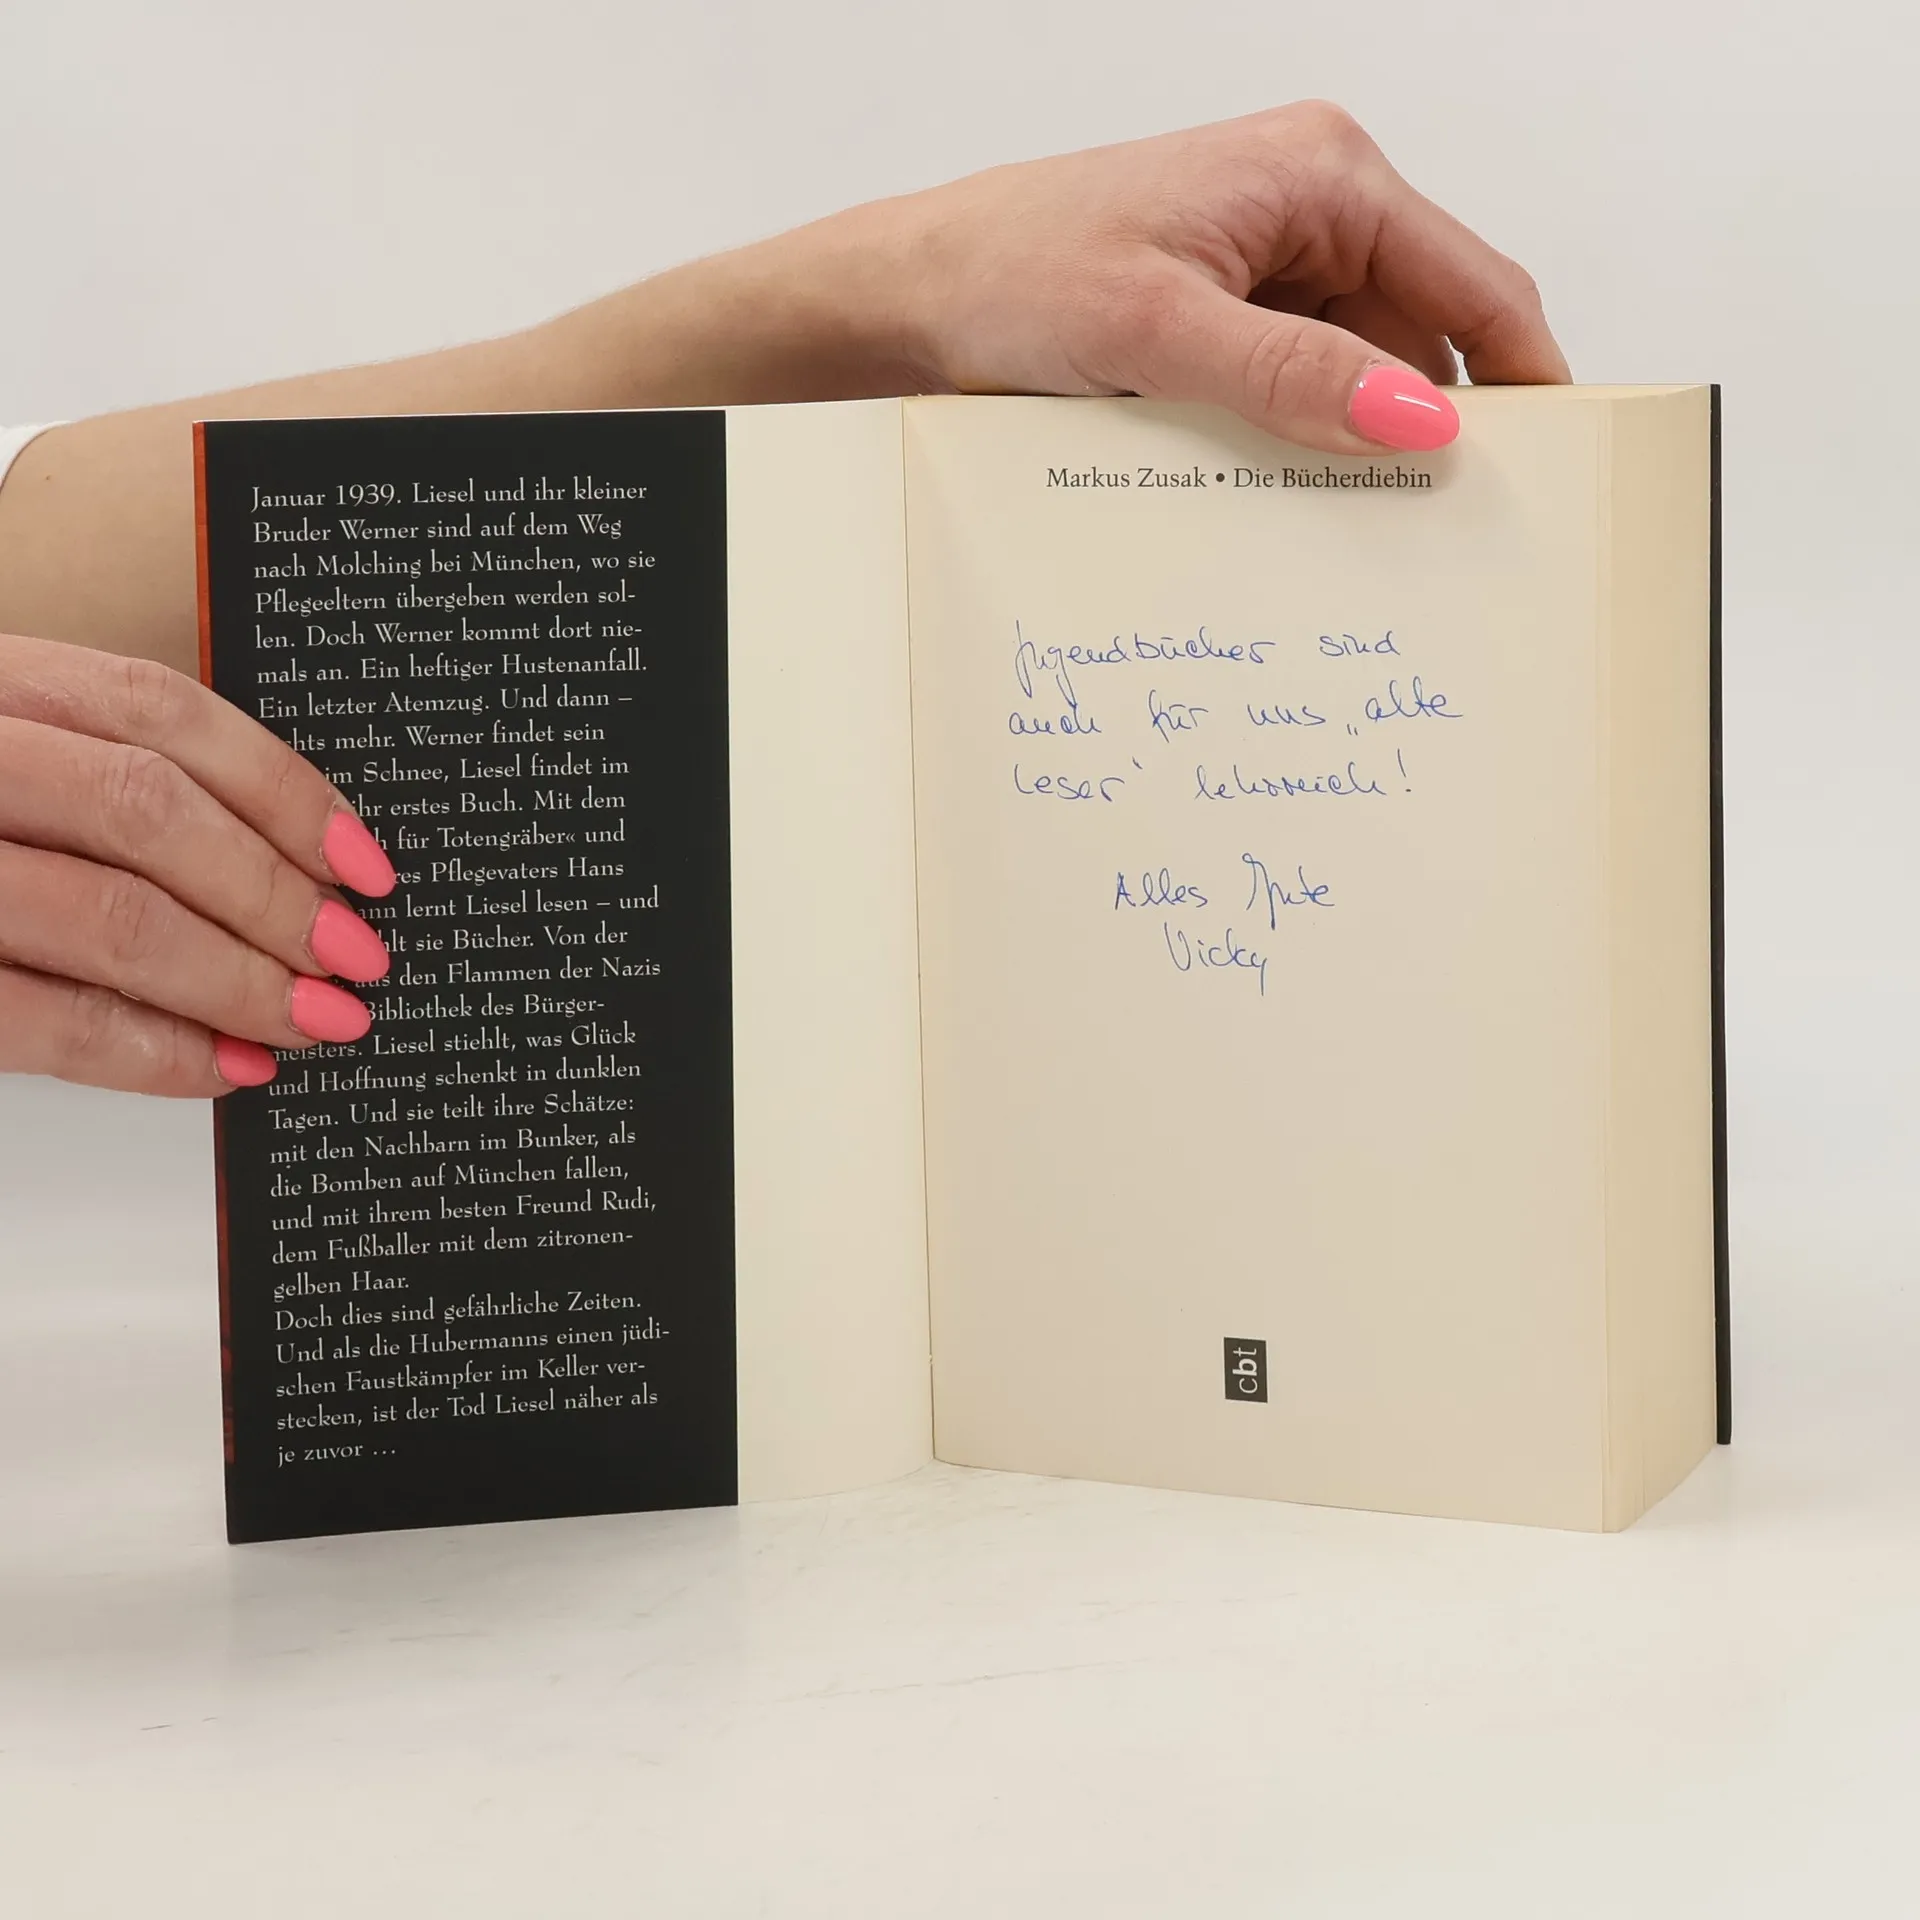 Januar 1939. Liesel und ihr kleiner
Bruder Werner sind auf dem Weg
nach Molching bei München, wo sie
Pflegeeltern übergeben werden sol-
len. Doch Werner kommt dort nie-
mals an. Ein heftiger Hustenanfall.
Ein letzter Atemzug. Und dann –
mehr. Werner findet sein
im Schnee, Liesel findet im
ihr erstes Buch. Mit dem
für Totengräber« und
Pflegevaters Hans
lernt Liesel lesen – und
sie Bücher. Von der
den Flammen der Nazis
Bibliothek des Bürger-
meisters. Liesel stiehlt, was Glück
und Hoffnung schenkt in dunklen
Tagen. Und sie teilt ihre Schätze:
mit den Nachbarn im Bunker, als
die Bomben auf München fallen,
und mit ihrem besten Freund Rudi,
dem Fußballer mit dem zitronen-
gelben Haar.
Doch dies sind gefährliche Zeiten.
Und als die Hubermanns einen jüdi-
schen Faustkämpfer im Keller ver-
stecken, ist der Tod Liesel näher als
je zuvor …
Markus Zusak • Die Bücherdiebin
Jugendbücher sind
auch für uns „alte
Leser“ lehrreich!
Alles Gute
Vicky
cbt